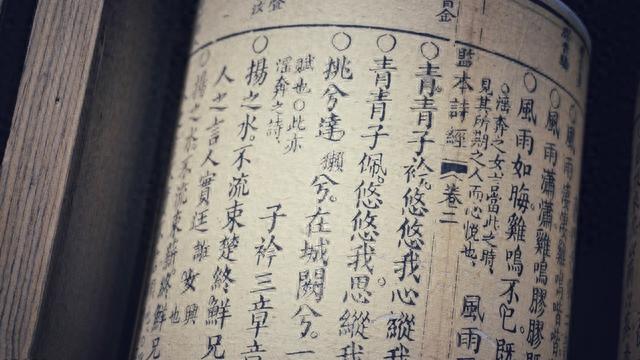 ○風雨瀟瀟雞鳴膠膠
○風雨如晦雞鳴不已。既
○淫奔之女言當此之時
見其所期之人而心悅也。
風雨
監本詩經 卷二
○青青子衿。悠悠我心縱
○青青子佩。悠悠我思。縱我
○挑兮達獺兮。在城闕兮。一
賦也○此亦
淫奔之詩。
子衿三章章
○揚之水。不流束楚終鮮兄
人之言人實廷 女 興也
○揚之水不流束薪終鮮兄